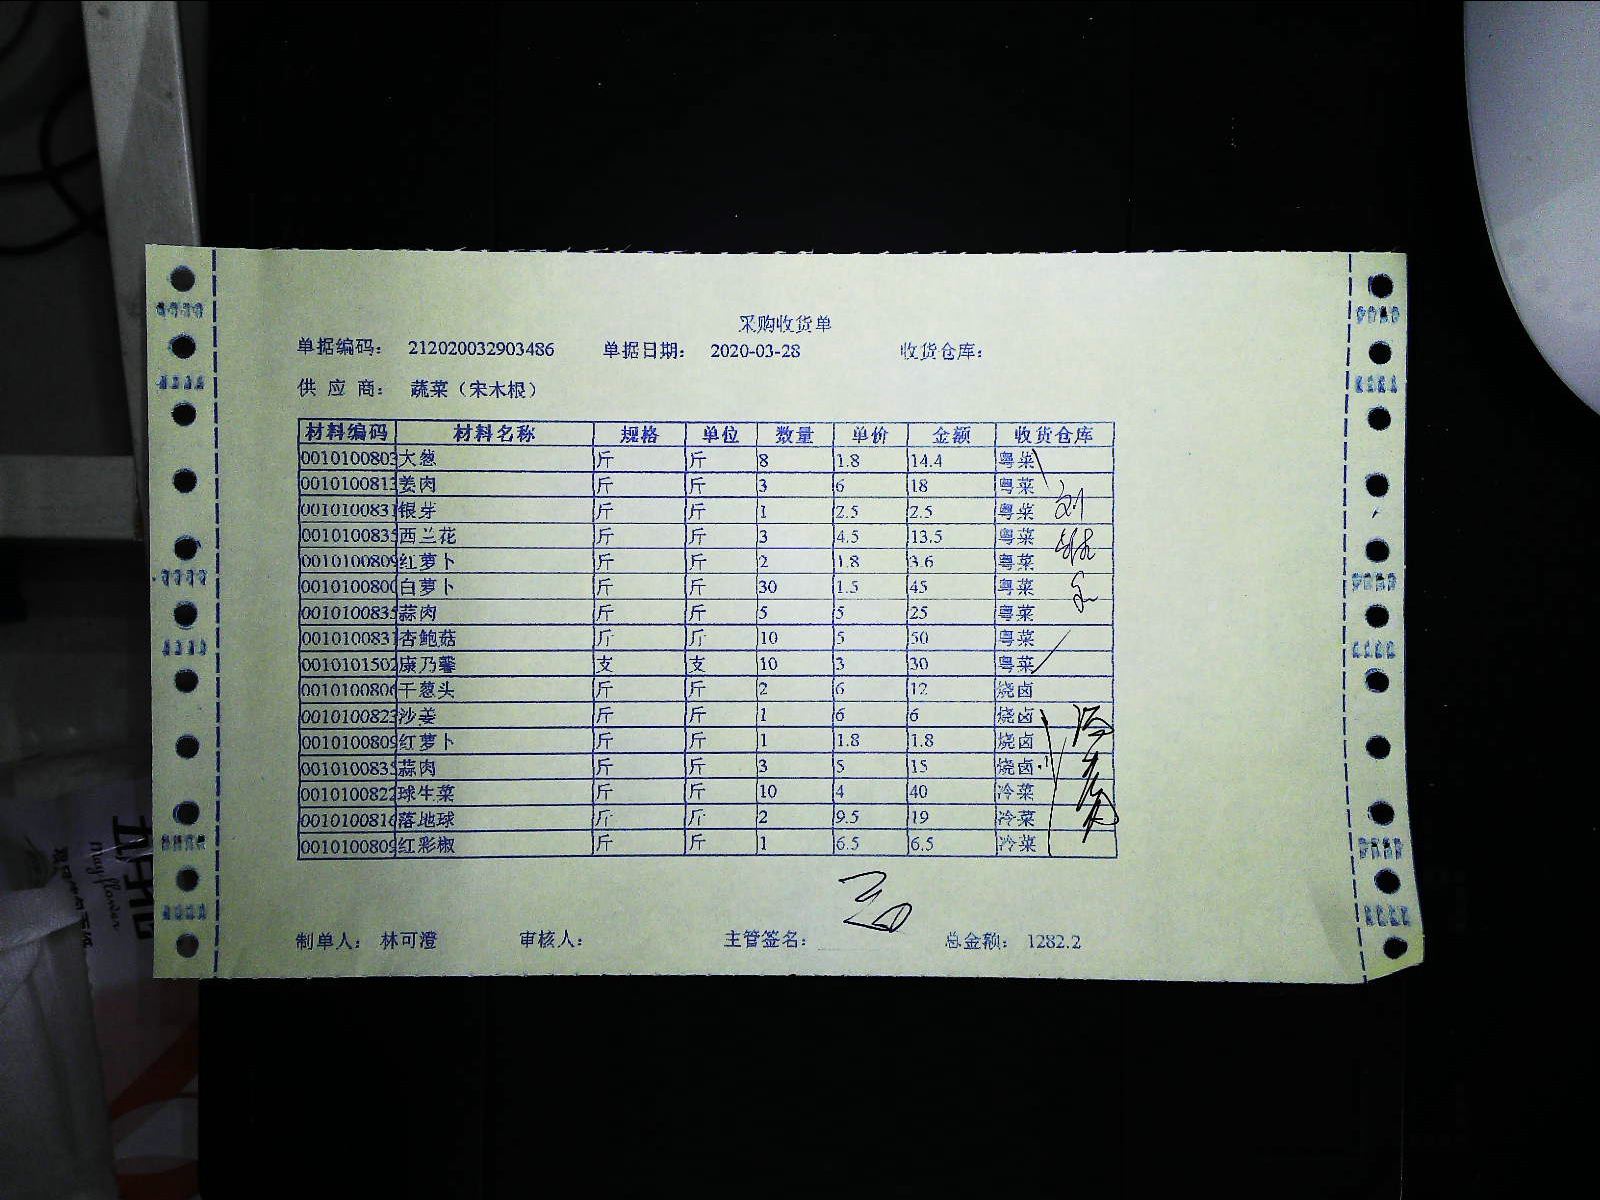 采购收货单
单据编码： 212020032903486 单据日期： 2020-03-28 收货仓库：
供 应 商： 蔬菜（宋木根）
材料编码 材料名称 规格 单位 数量 单价 金额 收货仓库
0010100803 大葱 斤 斤 8 1.8 14.4 粤菜
001010081 姜肉 斤 斤 3 6 18 粤菜
001010083 银芽 斤 斤 1 2.5 2.5 粤菜
001010083 西兰花 斤 斤 3 4.5 13.5 粤菜
0010100809 红萝卜 斤 斤 2 1.8 3.6 粤菜
001010080 白萝卜 斤 斤 30 1.5 45 粤菜
001010083 蒜肉 斤 斤 5 5 25 粤菜
001010083 杏鲍菇 斤 斤 10 5 50 粤菜
001010150 康乃馨 支 支 10 3 30 粤菜
001010080 干葱头 斤 斤 2 6 12 烧卤
001010082 沙姜 斤 斤 1 6 6 烧卤
0010100809 红萝卜 斤 斤 1 1.8 1.8 烧卤
001010083 蒜肉 斤 斤 3 5 15 烧卤
001010082 球生菜 斤 斤 10 4 40 冷菜
001010081 落地球 斤 斤 2 9.5 19 冷菜
0010100809 红彩椒 斤 斤 1 6.5 6.5 冷菜
制单人： 林可澄 审核人： 主管签名： 总金额： 1282.2
Mayflower